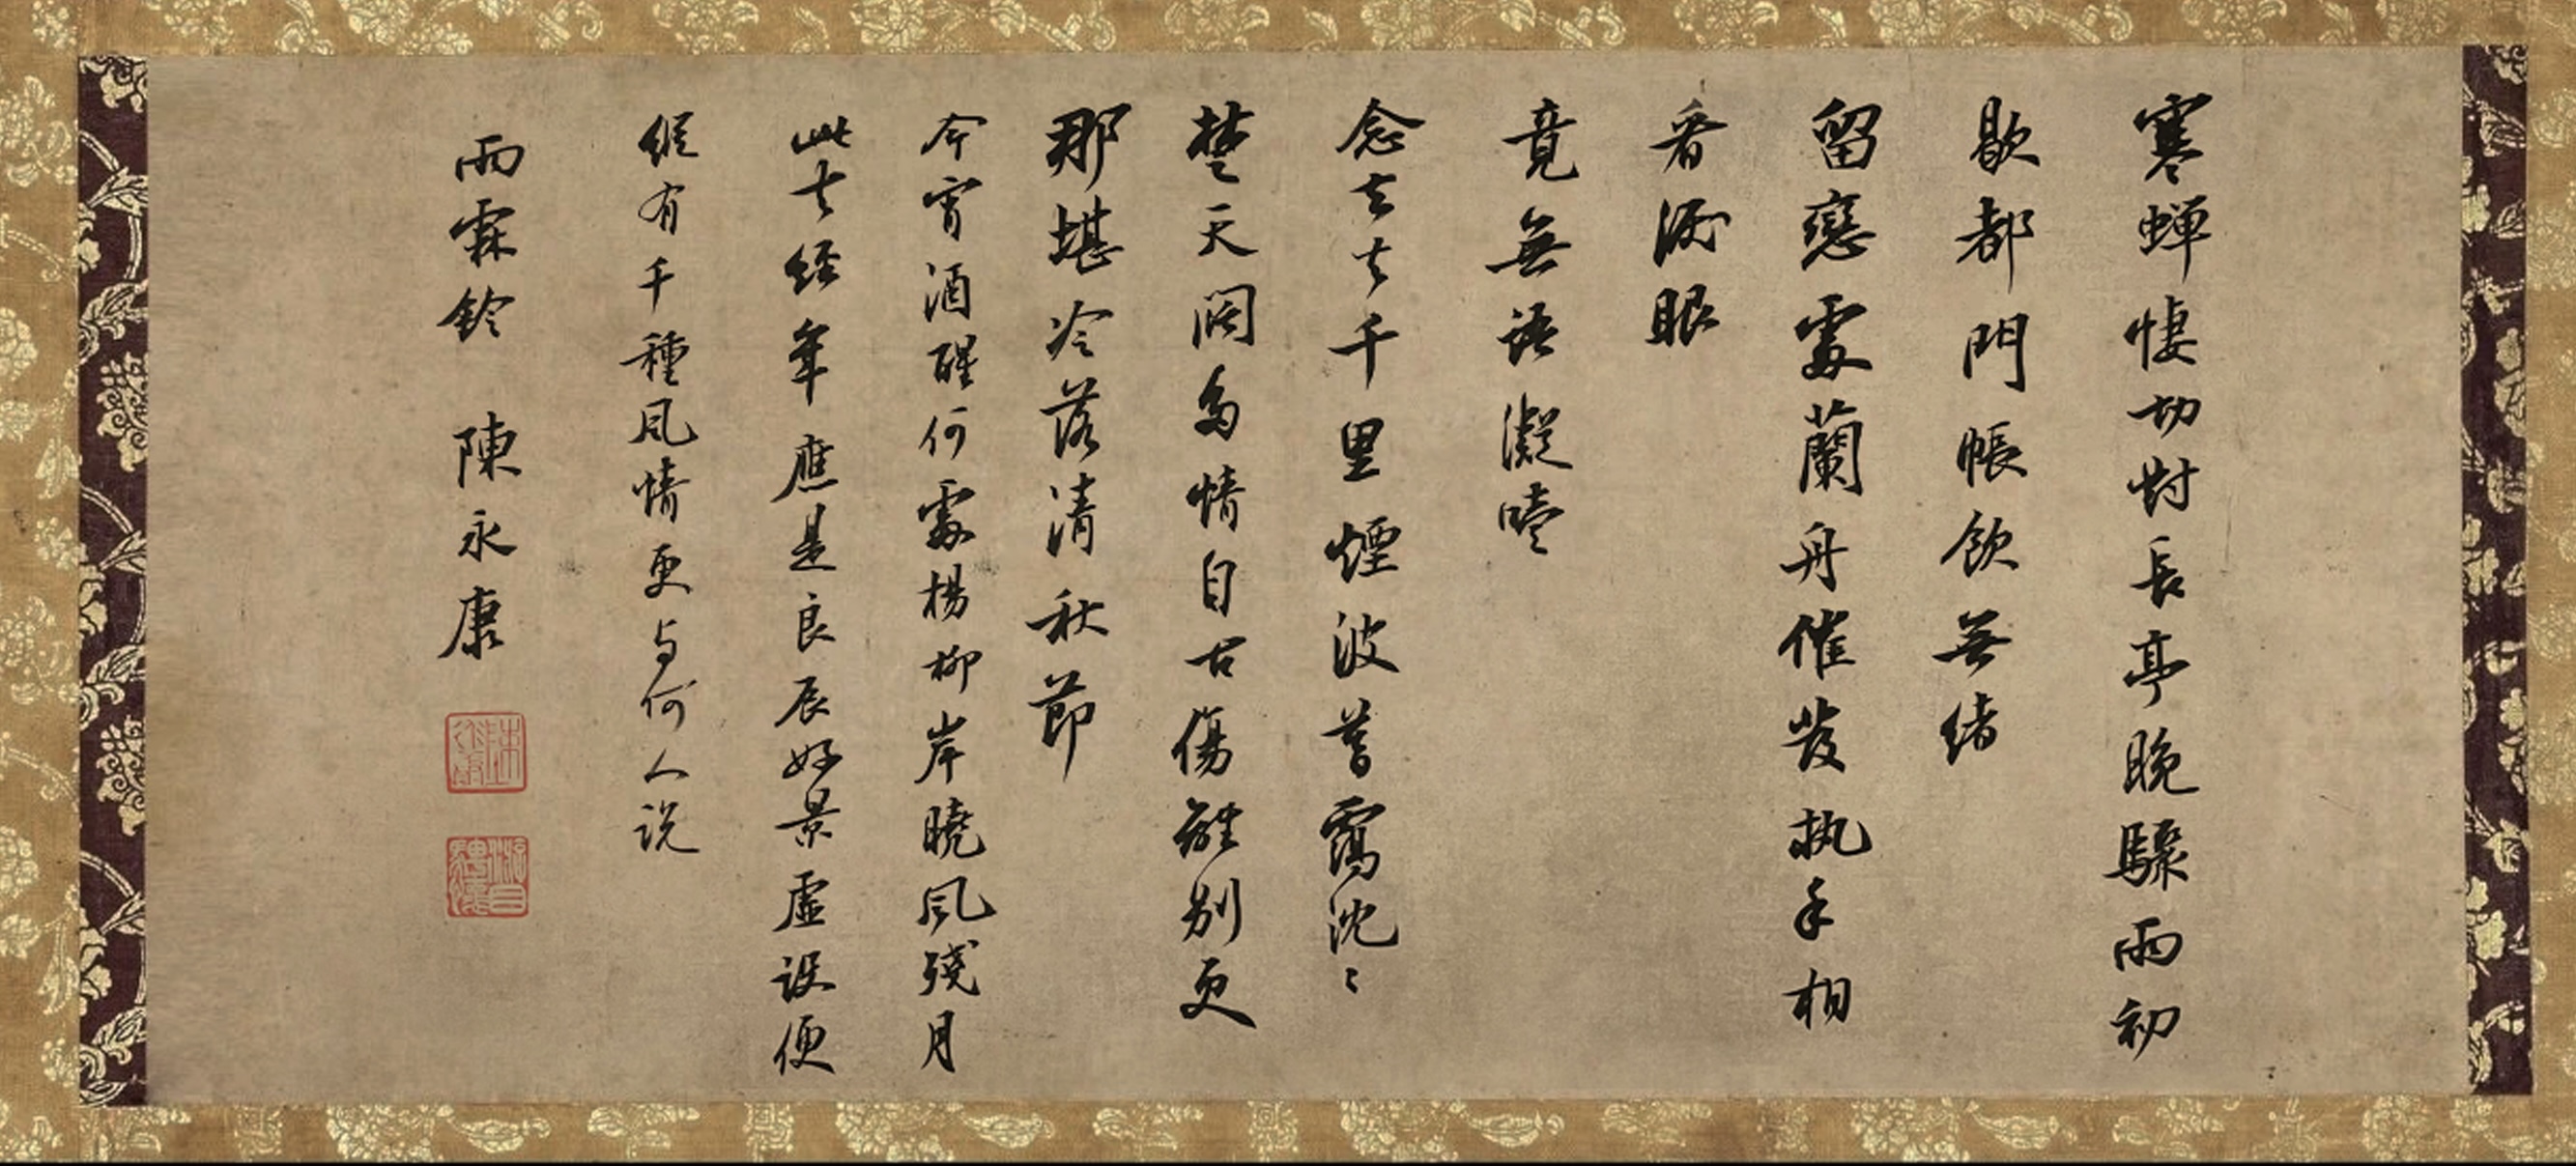 寒蟬悽切對長亭晚驟雨初
歇都門帳飲無緒
留戀處蘭舟催發執手相
看淚眼
竟無語凝噎
念去去千里煙波暮靄沈〻
楚天闊多情自古傷離別更
那堪冷落清秋節
今宵酒醒何處楊柳岸曉風殘月
此去經年應是良辰好景虛設便
縱有千種風情更与何人說
雨霖鈴 陳永康
游目騁懷